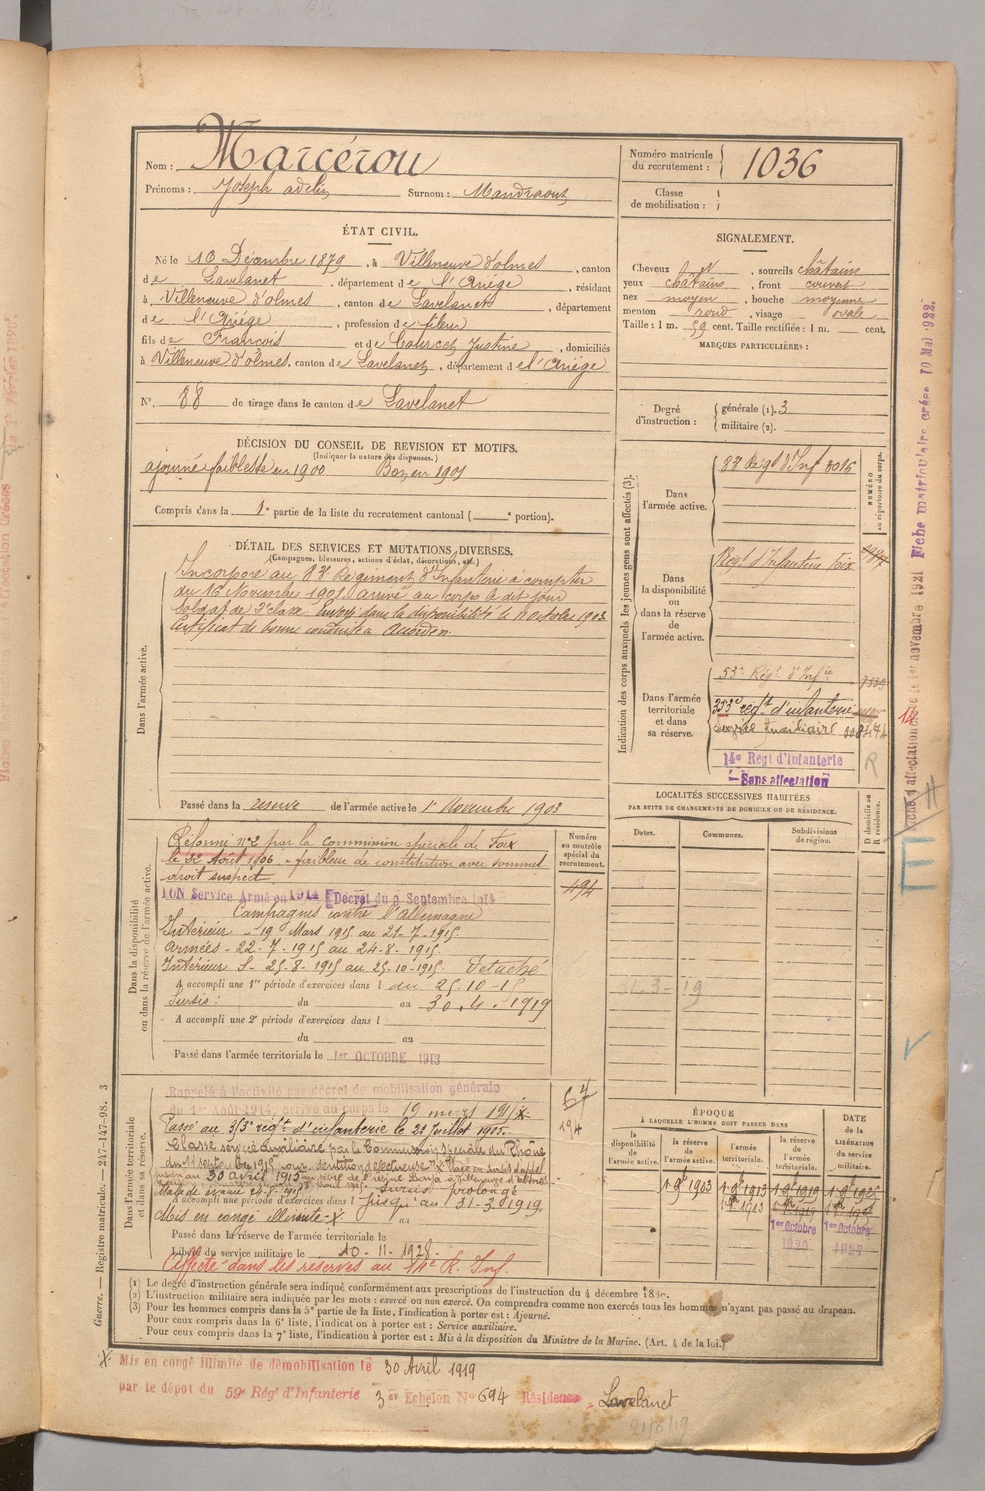 Nom : Marcerou
Numéro matricule du recrutement : 1036
Prénoms : Joseph adelin Surnom : Mandraout
Classe de mobilisation :
ÉTAT CIVIL.
Né le 10 Décembre 1879, à Villeneuve d'olmes, canton
de Lavelanet, département de l'Ariége, résidant
à Villeneuve d'olmes, canton de Lavelanet, département
de l'Ariége, profession de fileur
fils de François et de Courcet Justine, domiciliés
à Villeneuve d'olmes, canton de Lavelanet, département de l'Ariége
N° 88 de tirage dans le canton de Lavelanet
SIGNALEMENT.
Cheveux N, sourcils châtains
yeux châtains, front couvert
nez moyen, bouche moyenne
menton rond, visage ovale
Taille : 1 m. 59 cent. Taille rectifiée : 1 m. cent.
MARQUES PARTICULIÈRES :
Degré d'instruction : générale (1). 3
militaire (2).
DÉCISION DU CONSEIL DE REVISION ET MOTIFS.
(Indiquer la nature des dispenses.)
ajourné faiblesse en 1900 Bon en 1901
Compris dans la 1e partie de la liste du recrutement cantonal ( e portion).
DÉTAIL DES SERVICES ET MUTATIONS DIVERSES.
(Campagnes, blessures, actions d'éclat, décorations, etc.)
Dans l'armée active.
Incorporé au 83e Régiment d'Infanterie à compter
du 16 Novembre 1901 arrivé au corps le dit jour
Soldat de 2e classe. Envoyé dans la disponibilité le 11 octobre 1903.
Certificat de bonne conduite Accordé.
Passé dans la réserve de l'armée active le 1er Novembre 1903
Indication des corps auxquels les jeunes gens sont affectés (3).
NUMÉRO au répertoire du corps.
Dans l'armée active.
83e Regt d'Inf 3016
Dans la disponibilité ou dans la réserve de l'armée active.
Régt d'Infanterie Foix
Dans l'armée territoriale et dans sa réserve.
53e Régt d'Infie
353e regt d'infanterie
Service Auxiliaire
14e Regt d'Infanterie
Sans affectation
LOCALITÉS SUCCESSIVES HABITÉES
PAR SUITE DE CHANGEMENTS DE DOMICILE OU DE RÉSIDENCE.
D domicile ou R résidence.
Dates. Communes. Subdivisions de région.
31-3-19
Dans la disponibilité ou dans la réserve de l'armée active.
Numéro au contrôle spécial du recrutement.
494
Réformé n° 2 par la commission spéciale de Foix
le 22 Août 1906 - faiblesse de constitution avec sommet
droit suspect.
Service Armé en 1914 Décret du 9 Septembre 1914
Campagnes contre l'allemagne
Intérieur - 19 Mars 1915 au 21-7-1915.
armées - 22-7-1915 au 24-8-1915.
Intérieur S- 25-8-1915 au 25-10-1915. Détaché
A accompli une 1re période d'exercices dans l du 25.10-15
Sursis : du au 30.4.1919
A accompli une 2e période d'exercices dans l
du au
Passé dans l'armée territoriale le 1er OCTOBRE 1913
Dans l'armée territoriale et dans sa réserve.
Rappelé à l'activité par décret de mobilisation générale
du 1er Août 1914, arrivé au corps le 19 mars 1915
Passé au 353e regt d'infanterie le 22 Juillet 1915.
Classé service auxiliaire par la Commission spéciale du Rhône
du 11 septembre 1915
A accompli une période d'exercices dans l jusqu'au 31-3-1919.
Mis en congé illimité X au
Passé dans la réserve de l'armée territoriale le
Libéré du service militaire le 10-11-1928.
Affecté dans les réserves au 14e R. Inf.
67
194
ÉPOQUE
À LAQUELLE L'HOMME DOIT PASSER DANS
la disponibilité de l'armée active. la réserve de l'armée active. l'armée territoriale. la réserve de l'armée territoriale.
DATE DE LA LIBÉRATION du service militaire.
1.9bre 1903 1.9bre 1913 1.9bre 1919
1er Octobre 1er Octobre
(1) Le degré d'instruction générale sera indiqué conformément aux prescriptions de l'instruction du 4 décembre 1889.
(2) L'instruction militaire sera indiquée par les mots : exercé ou non exercé. On comprendra comme non exercés tous les hommes n'ayant pas passé au drapeau.
(3) Pour les hommes compris dans la 5e partie de la liste, l'indication à porter est : Ajourné.
Pour ceux compris dans la 6e liste, l'indication à porter est : Service auxiliaire.
Pour ceux compris dans la 7e liste, l'indication à porter est : Mis à la disposition du Ministre de la Marine. (Art. 4 de la loi.)
X Mis en congé illimité de démobilisation le 30 Avril 1919
par le dépot du 59e Rég't d'Infanterie 3er Echelon N° 694 Résidence Lavelanet
Guerre. — Registre matricule. — 247-147-98. 3
Fiche matriculaire créée 10 Mai 1922.